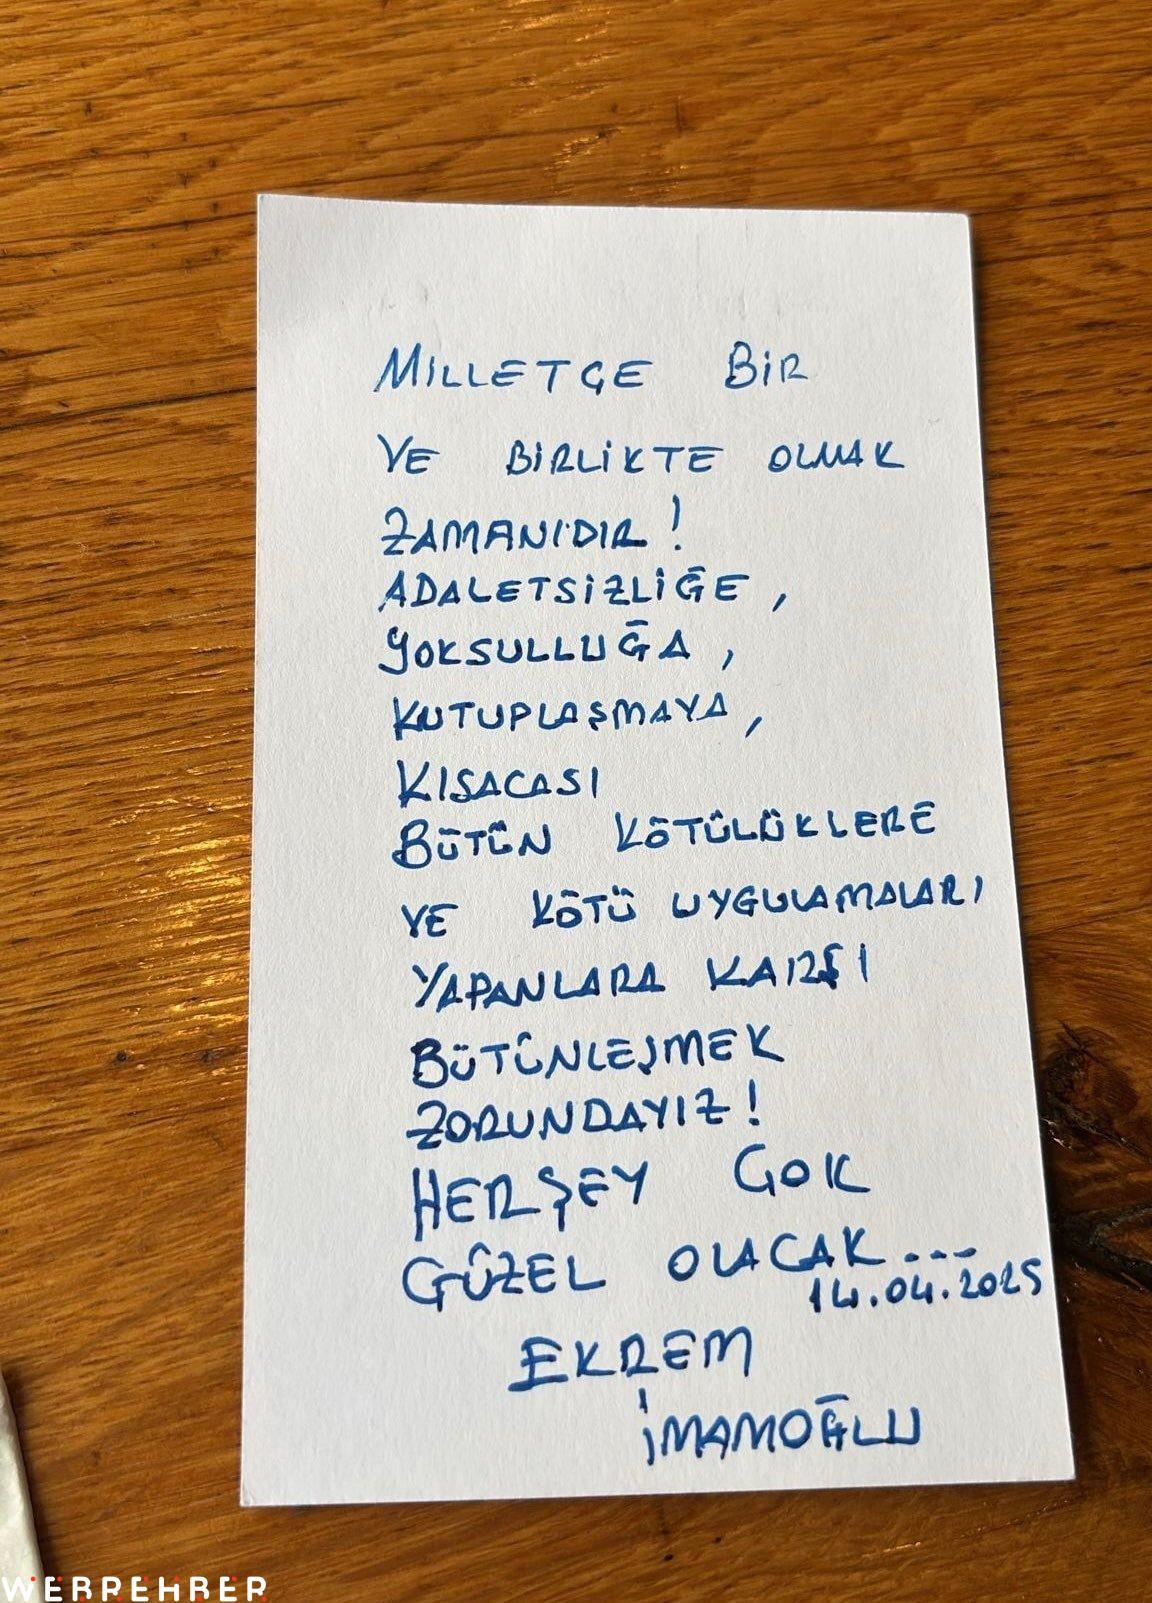 MİLLETÇE BİR
VE BİRLİKTE OLMAK
ZAMANIDIR!
ADALETSİZLİĞE,
YOKSULLUĞA,
KUTUPLAŞMAYA,
KISACASI
BÜTÜN KÖTÜLÜKLERE
VE KÖTÜ UYGULAMALARI
YAPANLARA KARŞI
BÜTÜNLEŞMEK
ZORUNDAYIZ!
HERŞEY ÇOK
GÜZEL OLACAK...
14.04.2025
EKREM
İMAMOĞLU
WEBREHBER